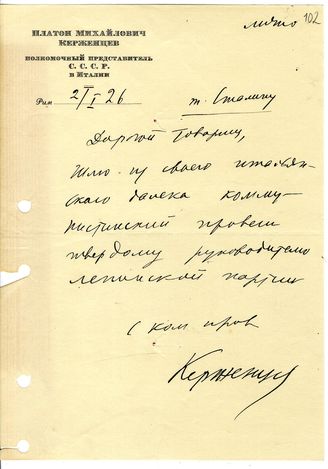 лично 102
Платон Михайлович
Керженцев
полномочный представитель
С. С. С. Р.
в Италии
Рим 2/I 26 т. Сталину
Дорогой товарищ,
Шлю из своего итальян-
ского далека комму-
нистический привет
твердому руководителю
ленинской партии
С ком прив
Керженцев